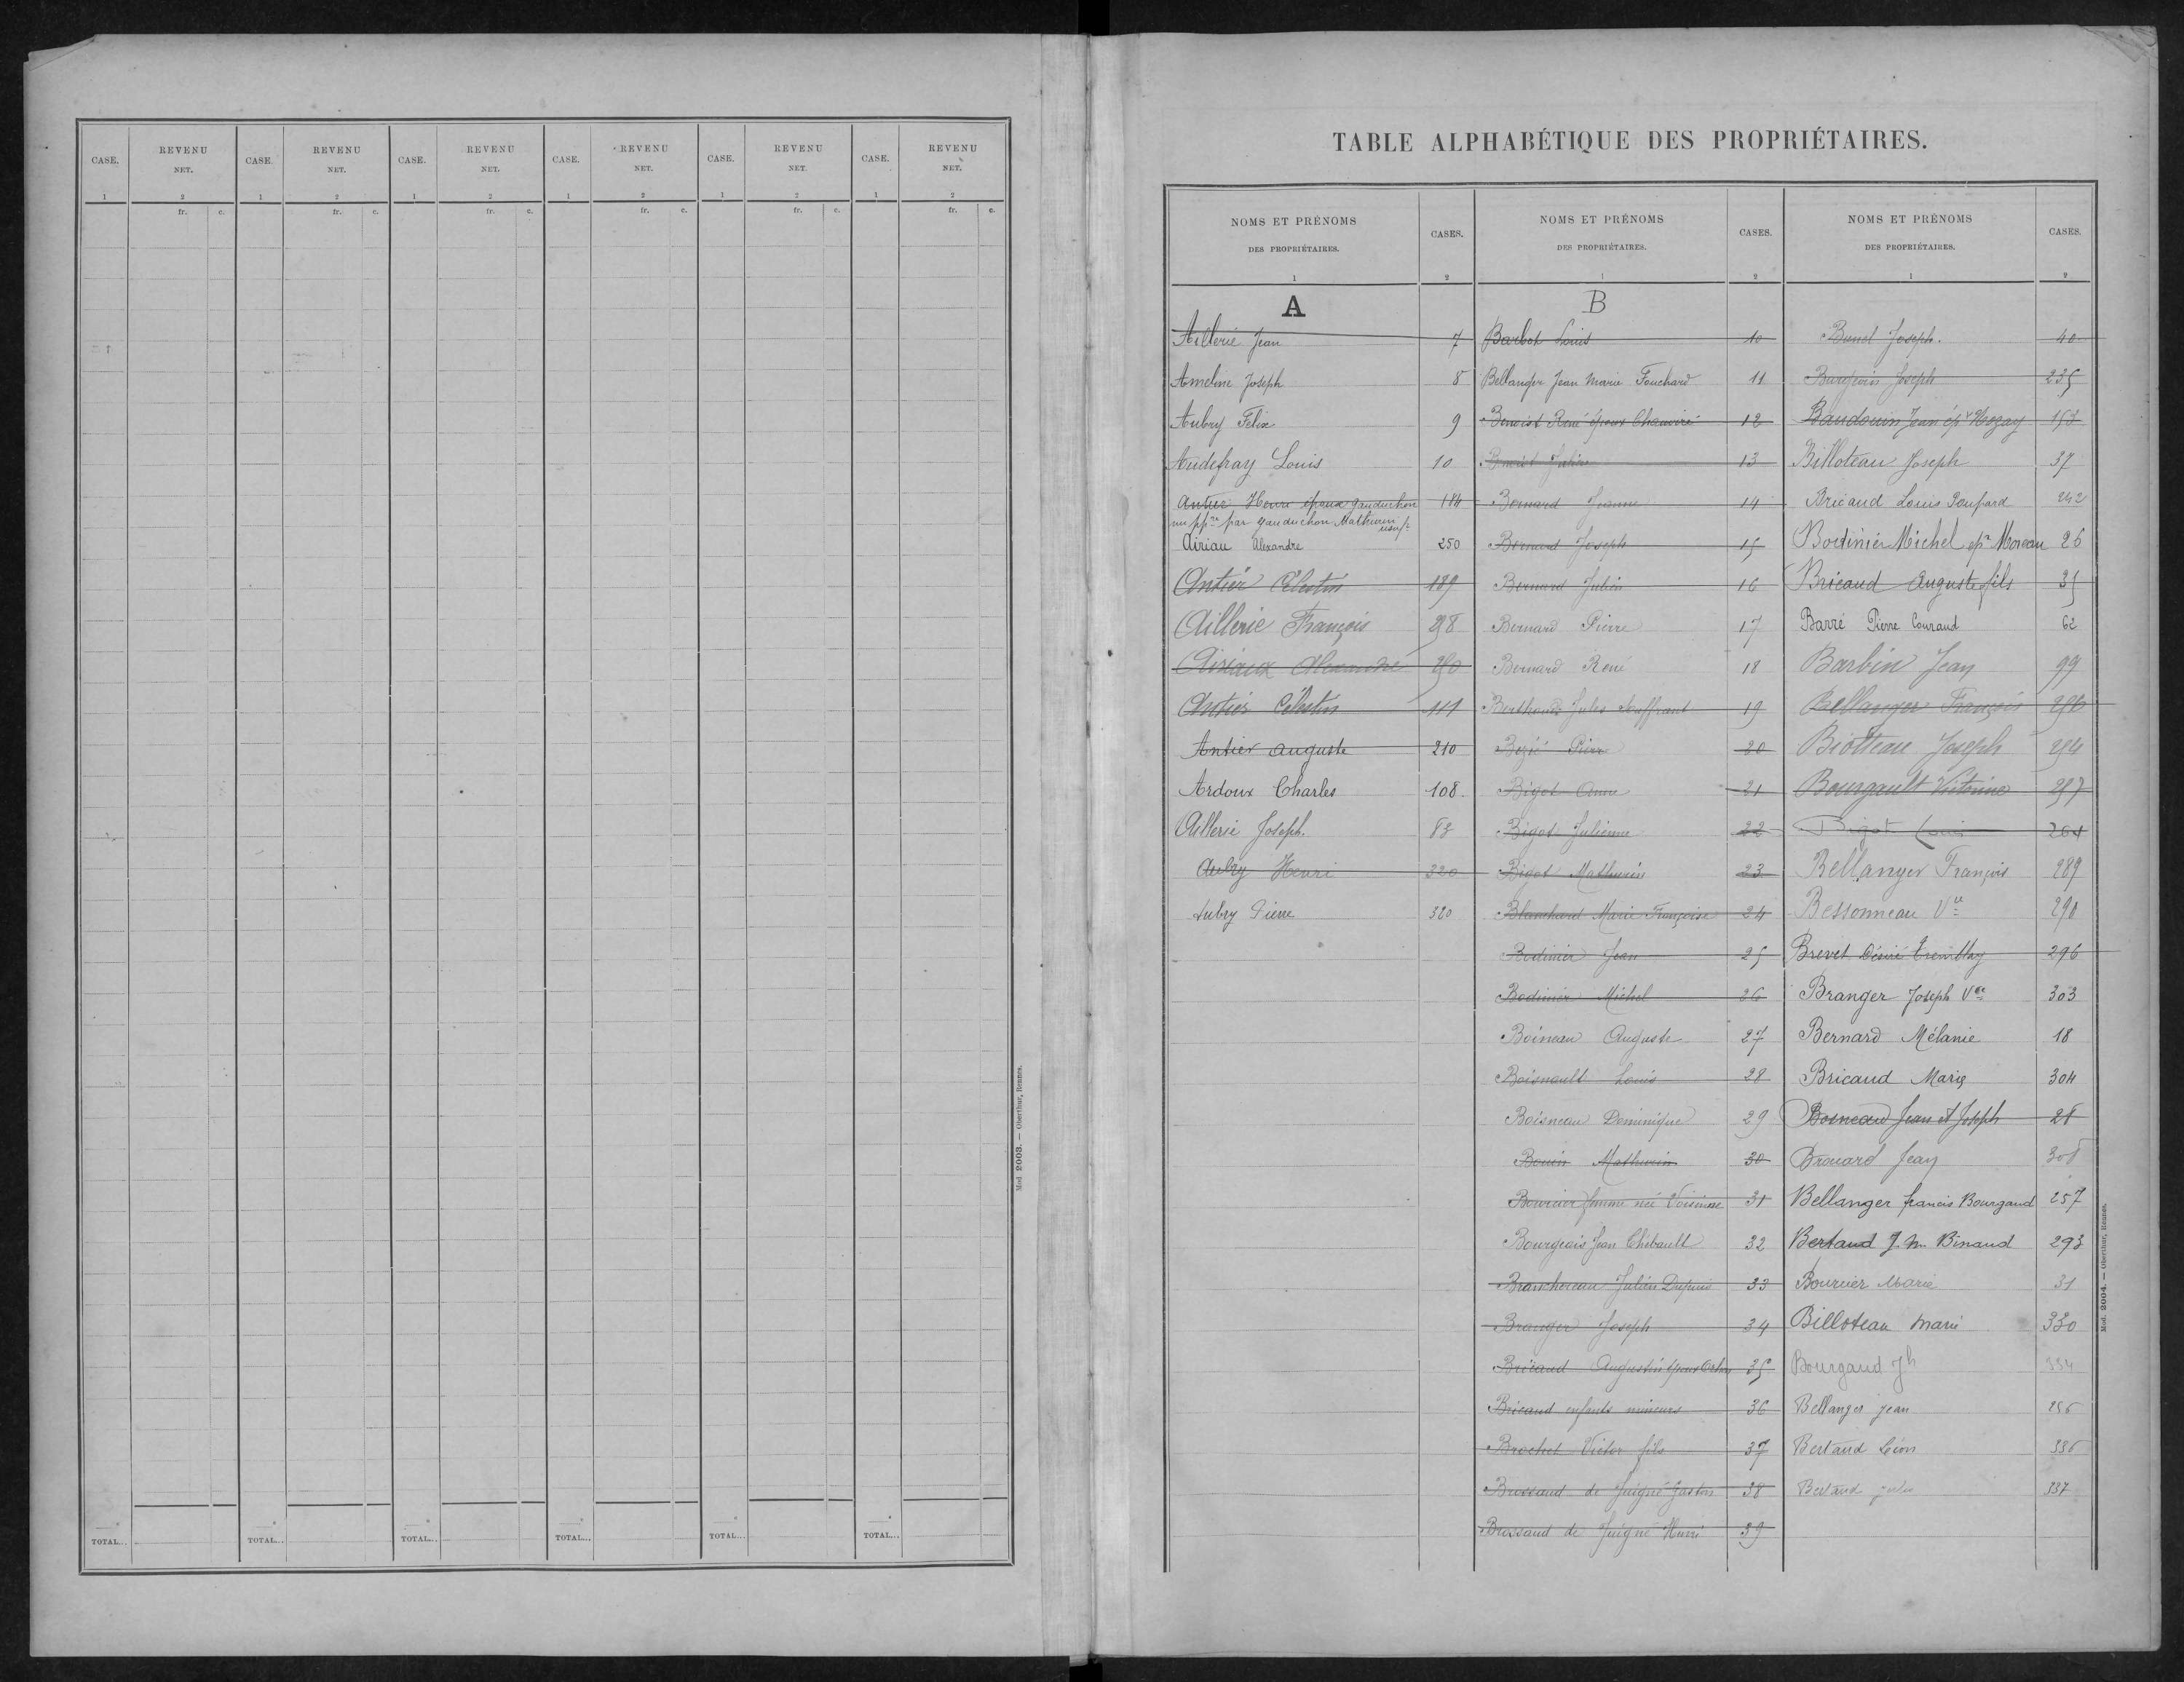 CASE. REVENU NET. CASE. REVENU NET. CASE. REVENU NET. CASE. REVENU NET. CASE. REVENU NET. CASE. REVENU NET.
1 2 1 2 1 2 1 2 1 2 1 2
fr. c. fr. c. fr. c. fr. c. fr. c. fr. c.
TOTAL... TOTAL... TOTAL... TOTAL... TOTAL... TOTAL...
Mod. 2003. — Oberthur, Rennes.
TABLE ALPHABÉTIQUE DES PROPRIÉTAIRES.
NOMS ET PRÉNOMS DES PROPRIÉTAIRES. CASES.
1 2
A
Aillerie Jean 7
Ameline Joseph 8
Aubry Félix 9
Audefray Louis 10
Antier Henri époux Gauduchon 184
nu ppre par Gauduchon Mathurin usuf
Airiau Alexandre 250
Antier Célestin 189
Aillerie François 258
Airiaux Alexandre 250
Antier Célestin 111
Antier Auguste 210
Ardoux Charles 108
Aillerie Joseph. 83
Aubry Henri 320
Aubry Pierre 320
NOMS ET PRÉNOMS DES PROPRIÉTAIRES. CASES.
1 2
B
Barbot Louis 10
Bellanger Jean Marie Fouchard 11
Benoist René époux Chauviré 12
Benoist Julien 13
Bernard Jeanne 14
Bernard Joseph 15
Bernard Julien 16
Bernard Pierre 17
Bernard René 18
Berthoud Jules Souffrant 19
Bezié Pierre 20
Bigot Anne 21
Bigot Julienne 22
Bigot Mathurin 23
Blanchard Marie Françoise 24
Bodinier Jean 25
Bodinier Michel 26
Boineau Auguste 27
Boisnault Louis 28
Boisneau Dominique 29
Bouin Mathurin 30
Bourcier femme née Voisinne 31
Bourgeais Jean Thébault 32
Branchereau Julien Dupuis 33
Branger Joseph 34
Bricaud Augustin époux 35
Bricaud enfants mineurs 36
Brochet Victor fils 37
Brossaud de Juigné Gaston 38
Brossaud de Juigné Henri 39
NOMS ET PRÉNOMS DES PROPRIÉTAIRES. CASES.
1 2
Joseph. 40
Joseph 235
Baudouin Jean ép 153
Billoteau Joseph 37
Bricaud Louis Poupard 242
Bodinier Michel ep Moreau 26
Bricaud Auguste fils 35
Barré Pierre Couraud 62
Barbin Jean 99
Bellanger François 256
Biotteau Joseph 254
Bourgault Victorine 257
Bigot Louis 264
Bellanger François 289
Bessonneau Vve 290
Brevet Désiré Tremblay 296
Branger Joseph Vve 303
Bernard Mélanie 18
Bricaud Marie 304
Boineau Jean et Joseph 28
Brouard Jean 308
Bellanger francis Bourgaud 257
Bertaud J. M. Binaud 293
Bourcier Marie 31
Billoteau Marie 330
Bourgaud Jh 334
Bellanger Jean 256
Bertaud Léon 336
Bertaud Julien 337
Mod. 2004. — Oberthur, Rennes.